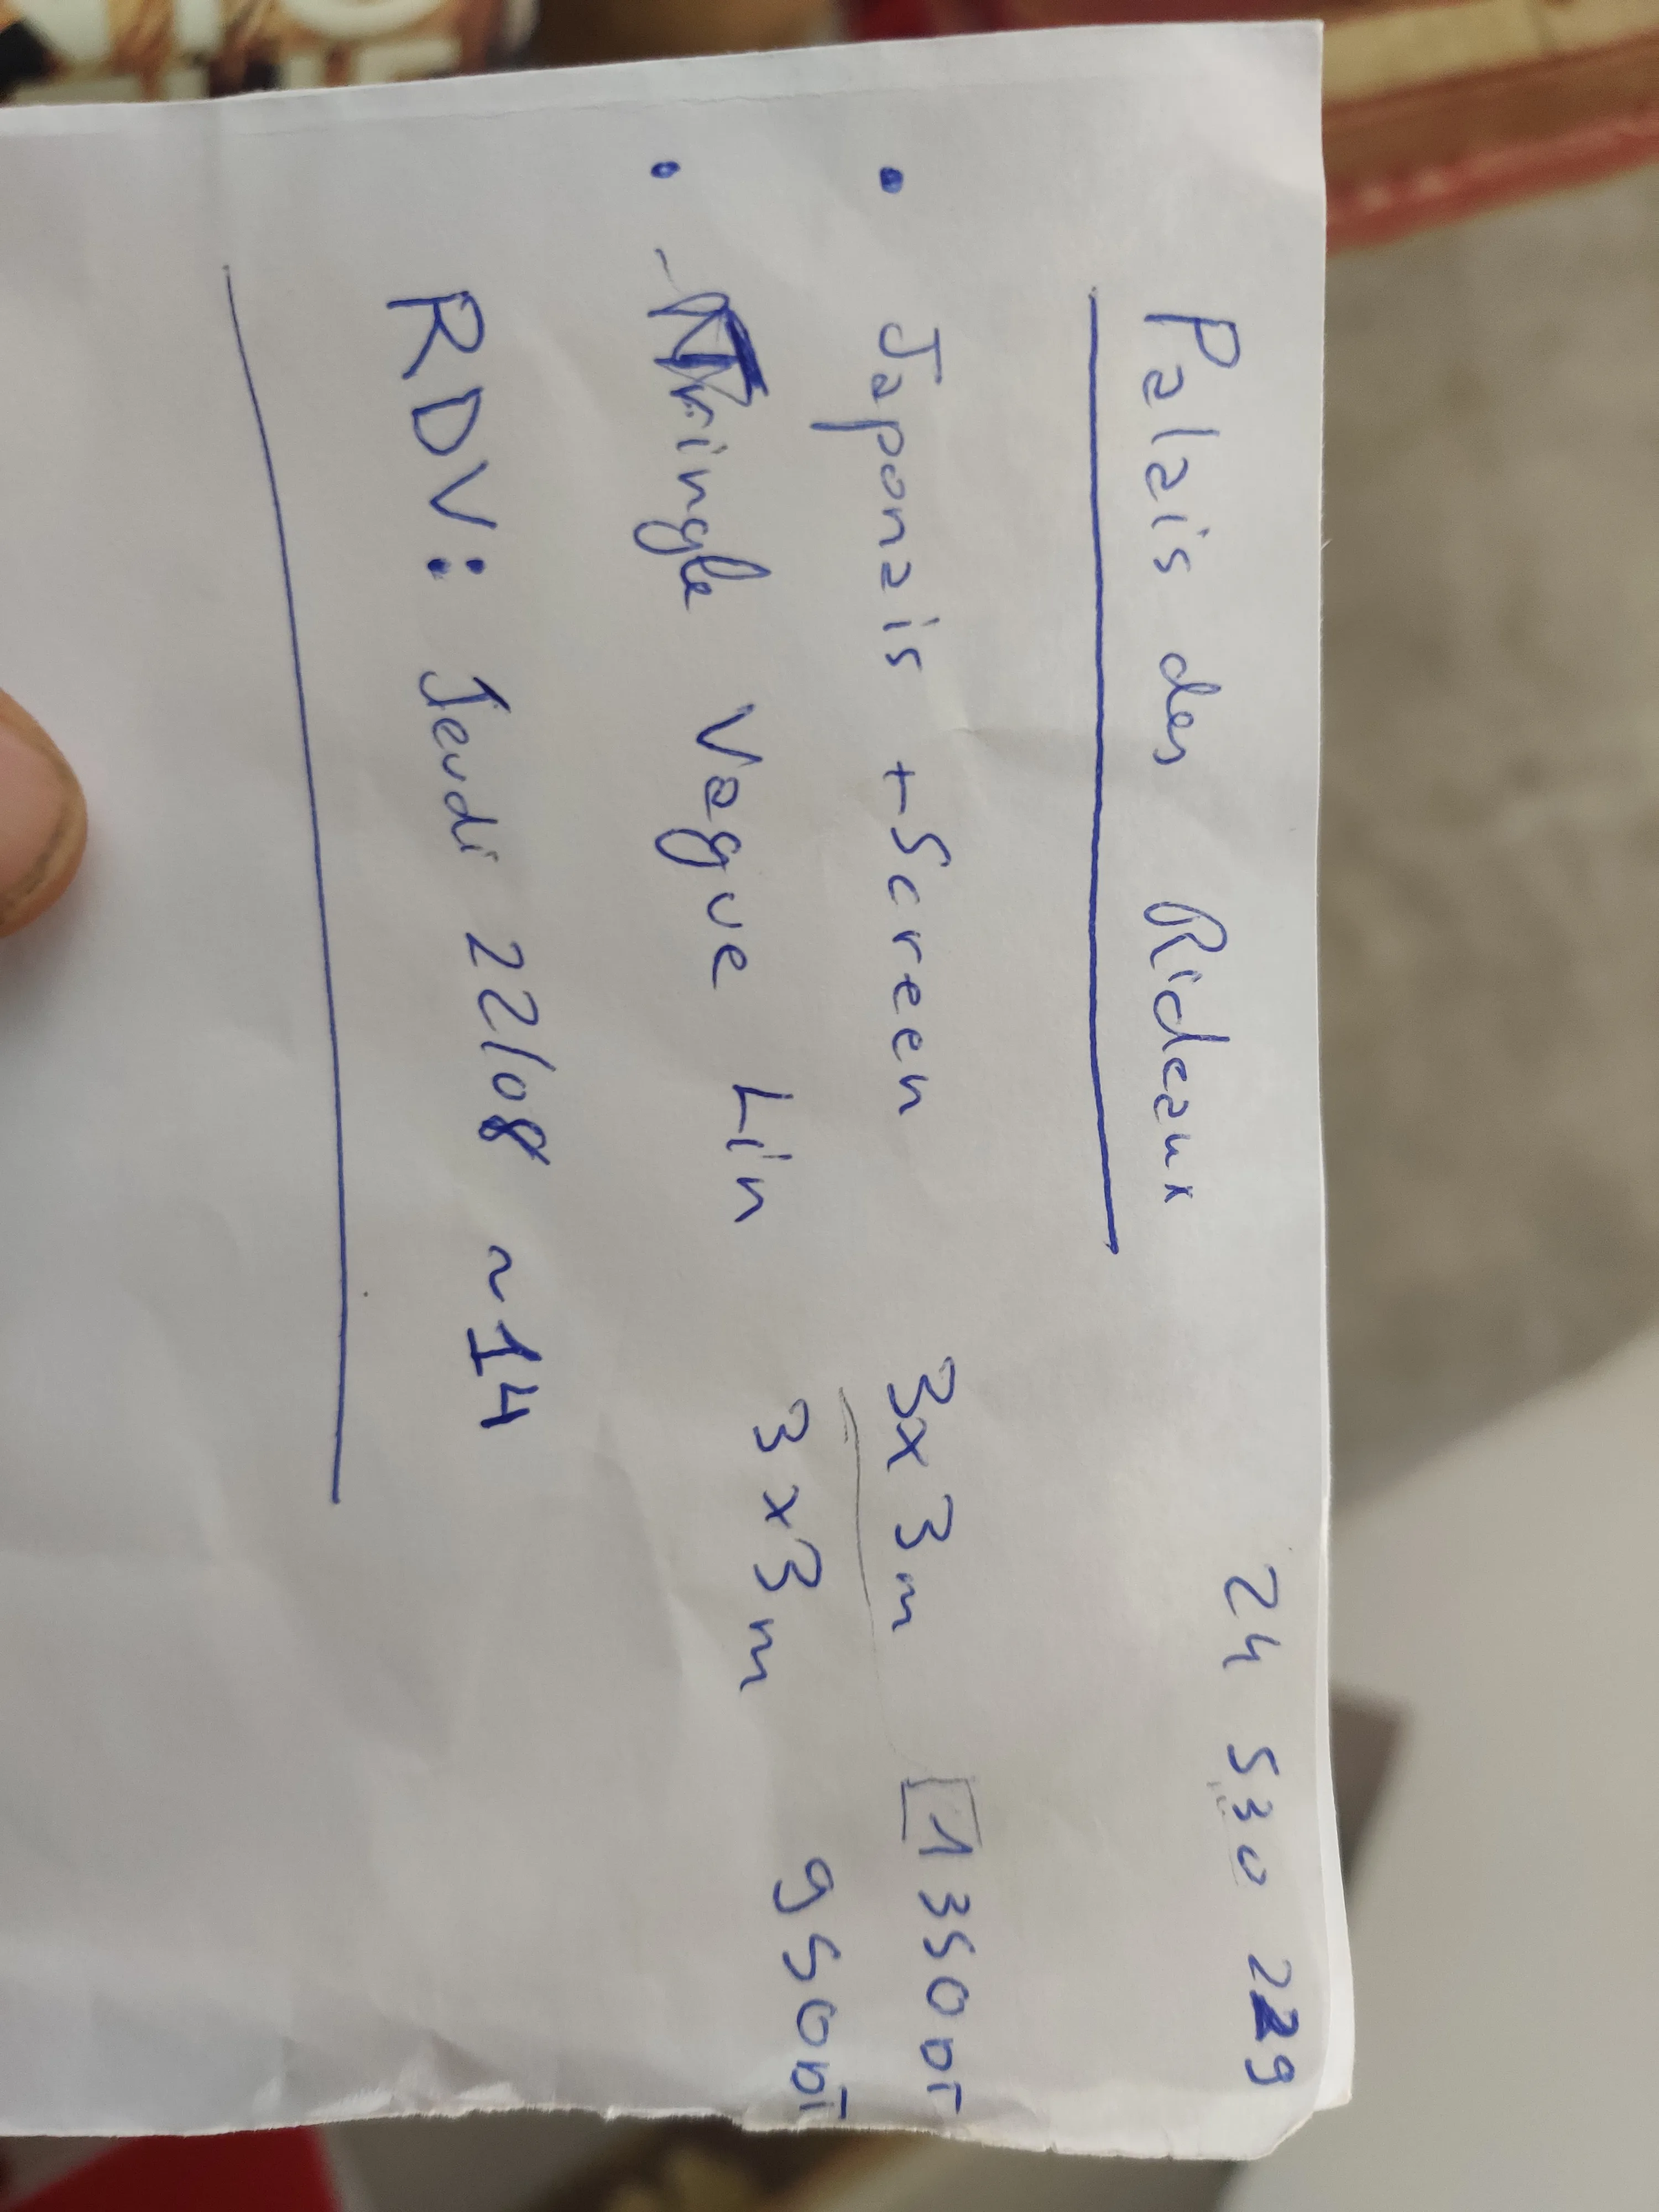 24 530 229
Palais des Rideaux
• Japonais + Screen 3x3m 1350DT
• Tringle Vague Lin 3x3m 950DT
RDV: Jeudi 22/08 ~14